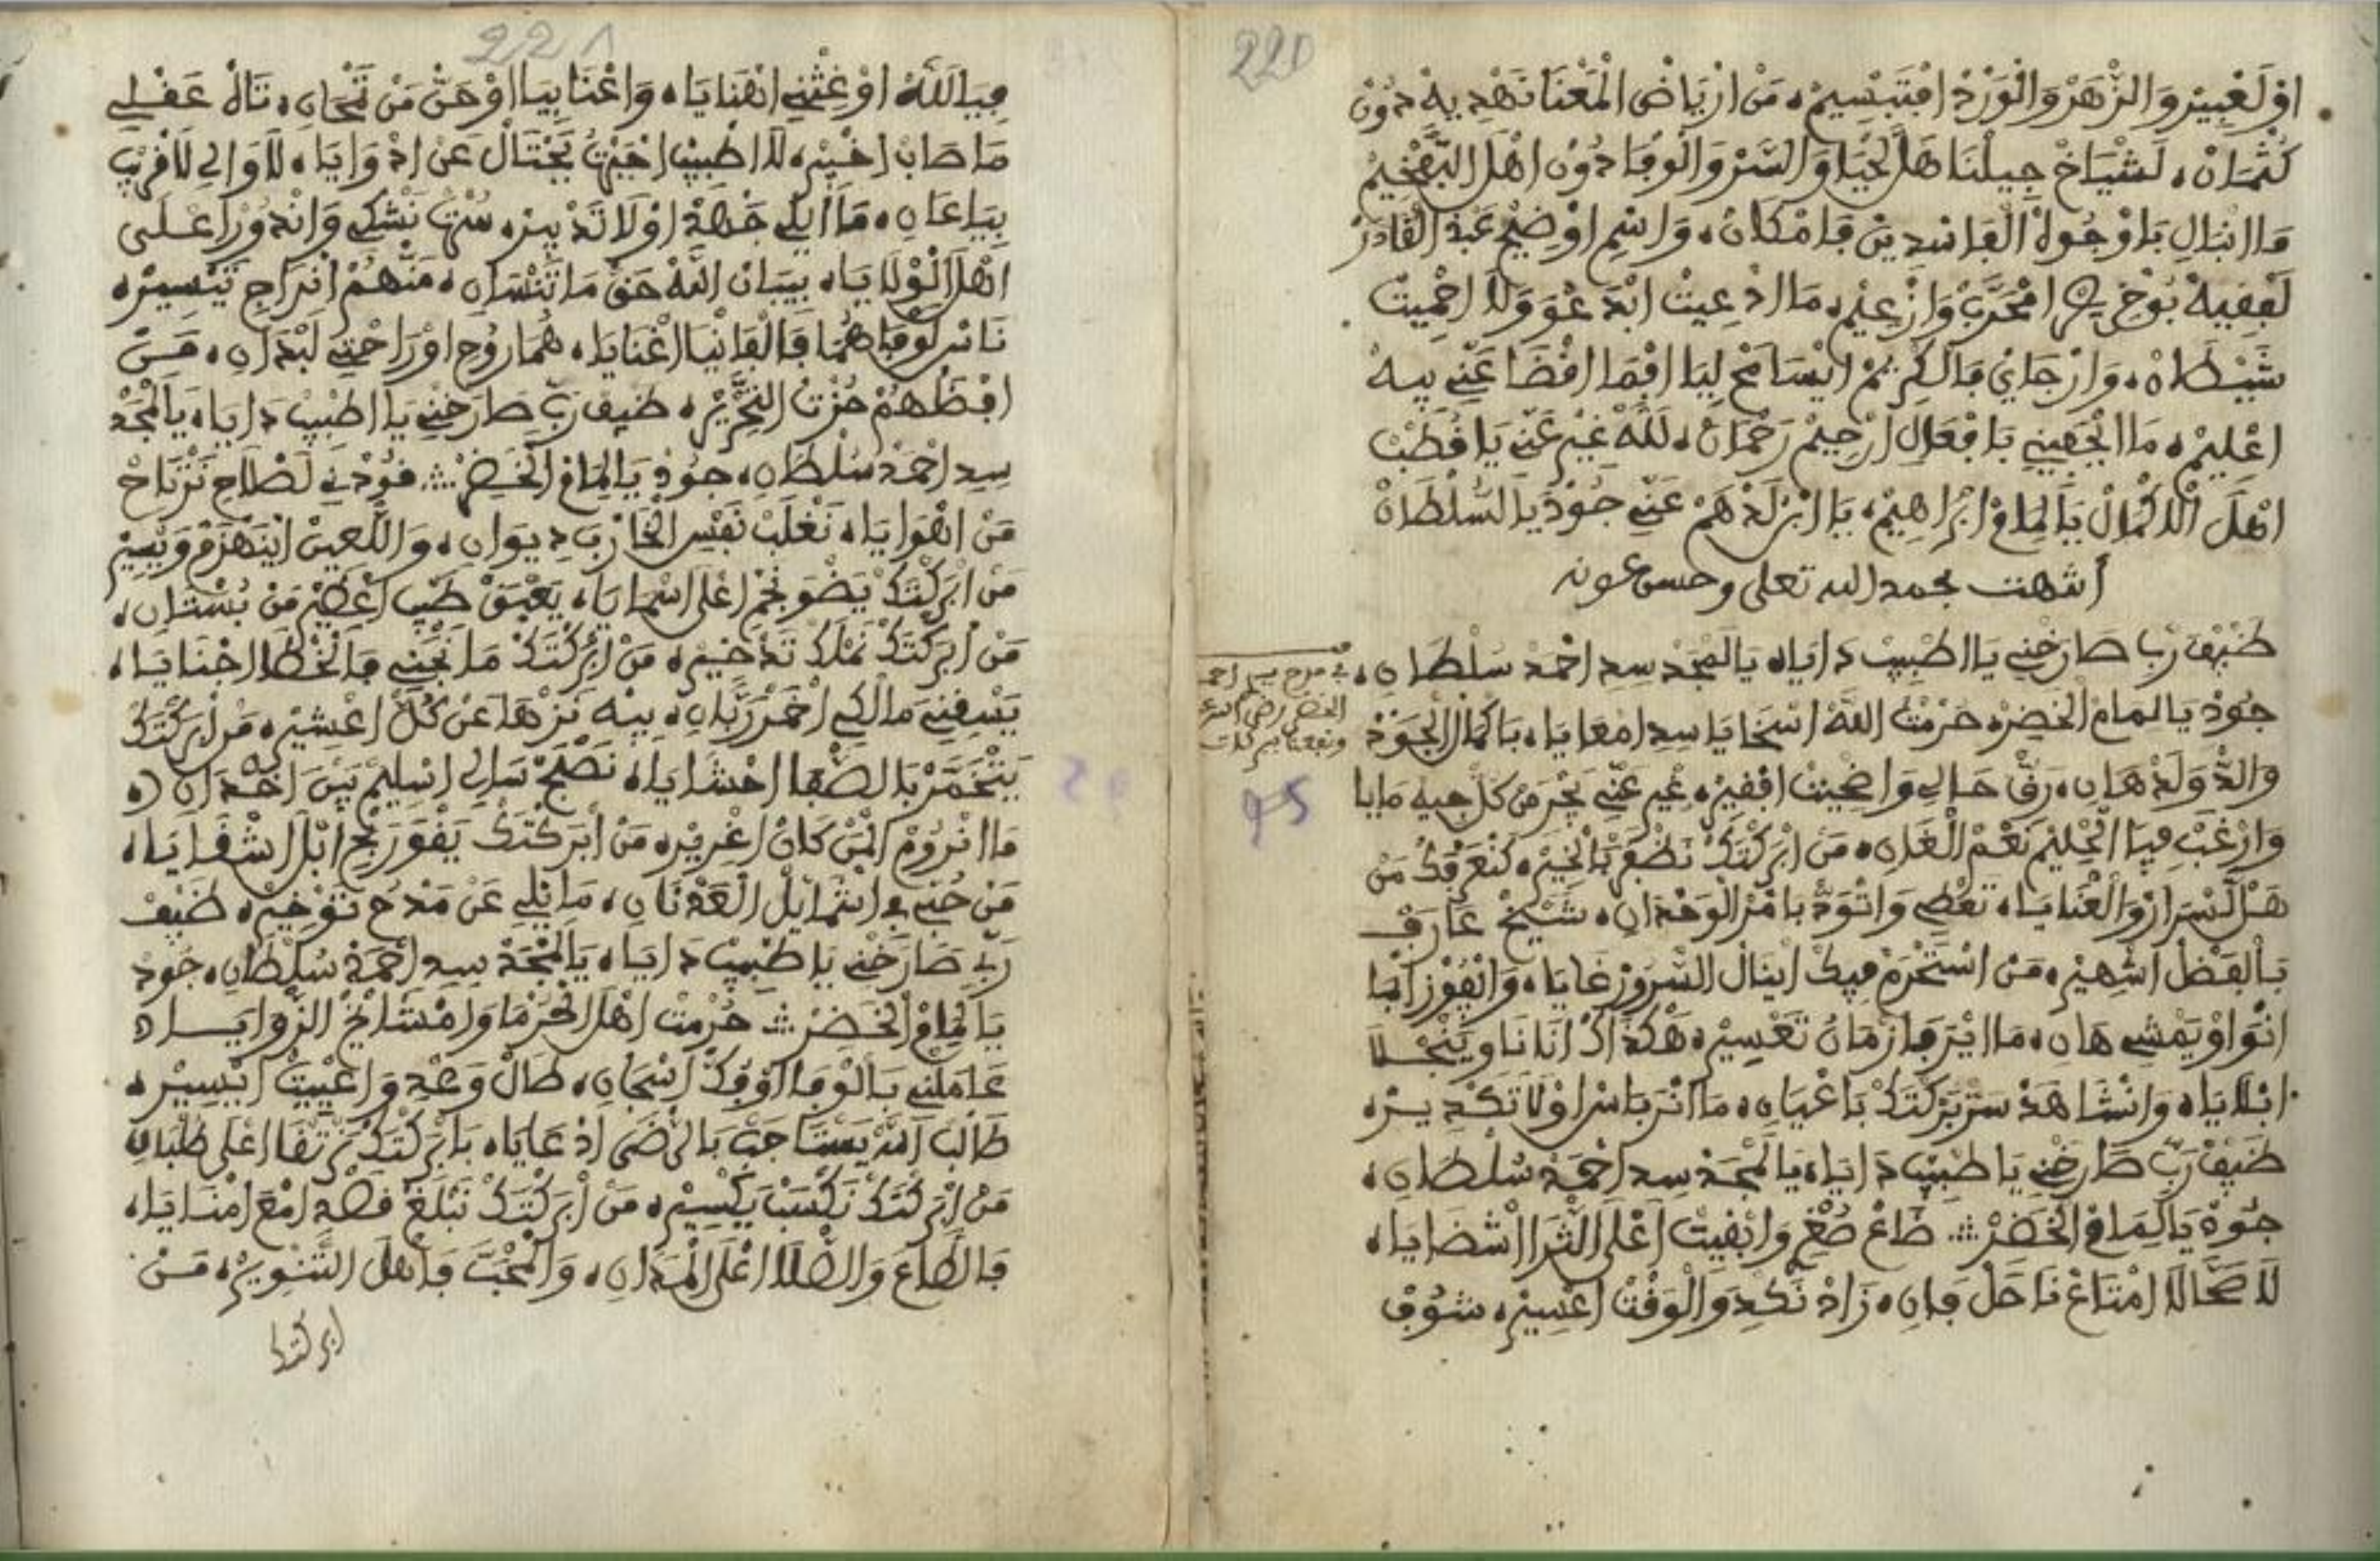 220
اوْلَغْبِيرْ وَالزَّهَرْ وَالْوَرْدْ افْتَبْسِيمْ، مَنْ ارْيَاضْ الْمَعْنَا نَهْدِيهْ دُونْ
كُتْمَانْ، لَشْيَاخْ جِيلْنَا هَلْ الْحْيَا وَالسَّرْ وَالْوفَا دُونْ اهْلْ التَّفْخِيمْ
مَا انْبَالِي بَاوْجُوهْ الْفَاسْدِينْ فَامْكَانْ، وَاسْمِ اوْضِيحْ عَبْدْ الْقَادَرْ
لَفْقِيهْ بُوخْرِيصْ امْجَرَّبْ وَازْعِيمْ، مَا ادْعِيتْ ابْدَعْوَ وَلَا احْمِيتْ
شَيْطَانْ، وَارْجَايْ فَالْكْرِيمْ ايْسَامَحْ لِيَا افْمَا افْضَا عَنِّي بِيهْ
اعْلِيمْ، مَا ايْجَفِينِي بَافْعَالِي ارْحِيمْ رَحْمَانْ، لَلَّهْ غِيرْ عَنِّي يَا فُطْبْ
اهْلْ الْكْمَالْ يَا لِمَامْ ابْرَاهِيمْ، يَا ابْنْ لَدْهَمْ عَنِّي جُودْ يَا السُّلْطَانْ
أنتهت بحمد الله تعلى وحسن عونه
ضَيْفْ رَبِّ صَارَخْنِي يَا اطْبِيبْ دَايَا، يَا لَمْجَدْ سِيدِ احْمَدْ سُلْطَانِ،
في مدح سي احمد
الخضر رضي الله عنه
ونفعنا ببركاته
جُودْ يَا لِمَامْ الْخَضِرْ، حُرْمَتْ اللَّهْ اسْخَايَا سِيدِ امْعَايَا، بَا كْمَالْ الْجُودْ
وَالْدّْ وَلَدْ هَانِ، رَقّْ حَالِي وَاضْحِيتْ افْقِيرْ، غِيرْ عَنِّي بَحْرْ مَنْ كُلّْ جِيهْ مَايَا
95
وَارْغَبْ فِيَّا الْحْلِيمْ نَعْمْ الْغَانِ، مَنْ ابْرَكْتَكْ نَظْفَرْ بَالْخَيْرْ، كَنْعَرْفَكْ مَنْ
هَلْ لَسْرَارْ وَالْعْنَايَا، تَعْطِي وَاتْوَدّْ بَامْرْ الْوَحْدَانِ، شَيْخْ عَارَفْ
بَالْفَضْلْ اشْهِيرْ، مَنْ اسْتَحْرَمْ فِيكْ ايْنَالْ السُّرُورْ غَايَا، وَانْفُوزْ ابْمَا
انْوَا وْيَمْشِي هَانِ، مَا ايْرَ فَازْمَانُ تَعْسِيرْ، هَكْذَاكْ انَانَا وِيَنْجْلَا
ابْلَايَا، وَانْشَاهَدْ سَرّْ بَرْكْتَكْ بَاعْيَانِ، مَا انْرَ بَاسْ اوْلَا تَكْدِيرْ،
ضَيْفْ رَبِّ صَارَخْنِي يَا طْبِيبْ دَايَا، يَا لَمْجَدْ سِيدِ احْمَدْ سُلْطَانِ،
جُودْ يَا لِمَامْ الْخَضَرْ ⁖ ضَاعْ صُغْرِ وَابْقِيتْ اعْلَى الثْرَا اشْضَايَا،
لَا صَحَّا لَا امْتَاعْ نَاحَلْ فَانِ، زَادْ نَكْدِ وَالْوَقْتْ اعْسِيرْ، شُوفْ
221
فِيَا لَلَّهْ اوْغِثْنِي انْهْنَايَا، وَاعْنَا بِيَا اوْحَنّْ مَنْ تَمْحَانِ، تَالْ عَقْلِي
مَا صَابْ اخْبِيرْ، لَا اطْبِيبْ احْبِيبْ يَحْتَالْ عَنْ ادْوَايَا، لَا وَالِي لَا قْرِيبْ
بِيَا عَانِ، مَا ايْلِي جَهْدْ اوْلَا تَدْبِيرْ، سَرْتْ نَشْكِي وَانْدُورْ اعْلَى
اهْلْ الْوْلَايَا، بِيبَانْ اللَّهْ حَقّْ مَا تَنْسَانِ، مَنْهُمْ انْرَاجِي تَيْسِيرْ،
نَاسْ لَوْفَا هُمَا فَالْفَانْيَا اغْنَايَا، هُمَا رُوحِ اوْرَاحْتِي لَبْدَانِ، مَنْ
افْظَهُمْ حُزْتْ التَّحْرِيرْ، ضَيْفْ رَبِّ صَارَخْنِي يَا اطْبِيبْ دَايَا، يَا لَمْجَدْ
سِيدِ احْمَدْ سُلْطَانِ، جُودْ يَا لِمَامْ الْخَضَرْ ⁖ قُودْنِي لَصْلَاحِ نَرْتَاحْ
مَنْ اهْوَايَا، نَغْلَبْ نَفْسِ الْحَارْبَ دِيوَانِ، وَاللّْعِينْ ايَنْهْزَمْ وَيْسِيرْ
مَنْ ابْرَكْتَكْ يَضْوَ نَجْمِ اعْلَى اسْمَايَا، يَعْبَقْ طِيبِ اعْطِيرْ مَنْ بُسْتَانِ،
مَنْ ابْرَكْتَكْ نَمْلَكْ تَدْخِيرْ، مَنْ ابْرَكْتَكْ مَا نَجْنِي فَالْخْطَا اجْنَايَا،
يَسْقِنِي مَالْكِي اخْمَرْ رَبَّانِ، بِيهْ نَزْهَا عَنْ كُلّْ اعْشِيرْ، مَنْ ابْرَكْتَكْ
يَتْخَمَّرْ بَالصّْفَا احْشَايَا، نَصْبَحْ سَالِي اسْلِيمْ بَيْنَ اخْدَانِ،
مَا انْرُومْ الْمَنْ كَانْ اغْرِيرْ، مَنْ ابْرَكْتَكْ يَقْوَ رَبْحِ ابْلَا اشْقَايَا،
مَنْ جْنِي فِ اتْمَايَلْ الْعَدْنَانِ، مَا نْلِي عَنْ مَدْحْ تَوْخِيرْ، ضَيْفْ
رَبِّ صَارَخْنِي يَا طْبِيبْ دَايَا، يَا لَمْجَدْ سِيدِ احْمَدْ سُلْطَانِ، جُودْ
يَا لِمَامْ الْخَضَرْ ⁖ حُرْمَتْ اهْلْ الْحُرْمَا وَامْشَايَخْ الزّْوَايَا،
عَامَلْنِي بَالْوْفَا اوْفَكّْ اسْجَانِ، طَالْ وَعْدِ وَاعْيِيتْ ايْسِيرْ،
طَالَبْ اللَّهْ يَسْتَاجَبْ بَالرّْضَى ادْعَايَا، بَابْرَكْتَكْ نَرْتْقَا اعْلَى طْلْبَانِ
مَنْ ابْرَكْتَكْ نَكْسَبْ يَكْسِيرْ، مَنْ ابْرَكْتَكْ نَبْلَغْ قَصْدِ امْعَ امْنَايَا،
فَالطَّاعَ وَالصّْلَا اعْلَى الْمَدَانِ، وَالْمْحَبَّ فَاهْلْ التَّنْوِيرْ، مَنْ
ابركتك